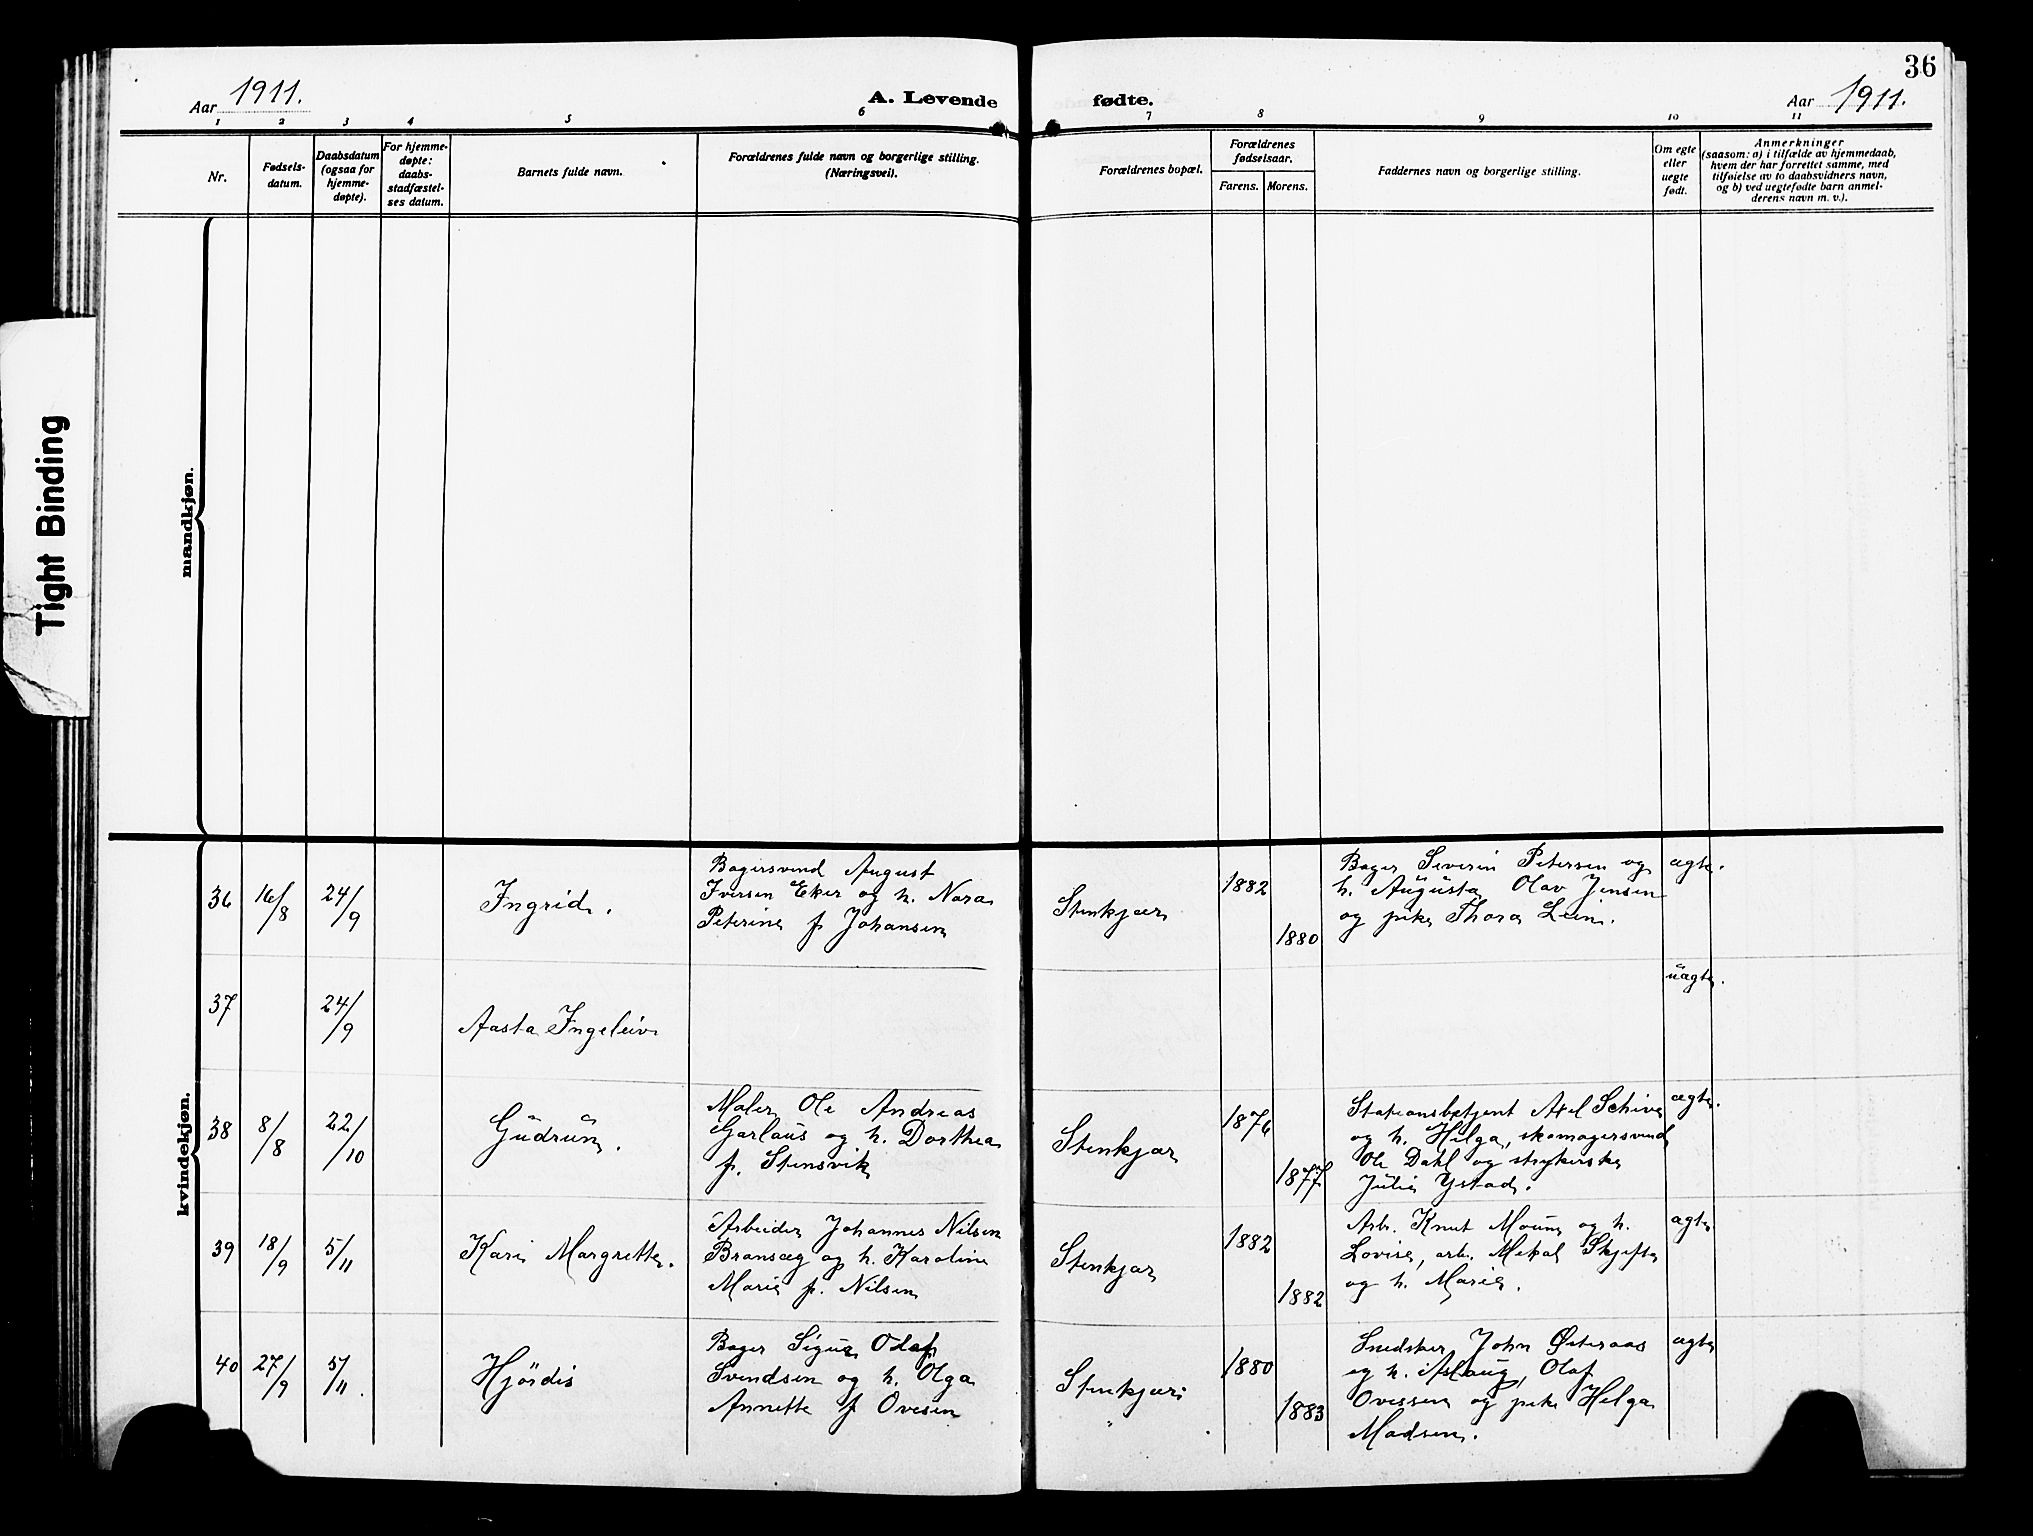 36
Aar 1911.
A. Levende fødte.
Aar 1911.
1 2 3 4 5 6 7 8 9 10 11
Nr.
Fødsels-
datum.
Daabsdatum
(ogsaa for
hjemme-
døpte).
For hjemme-
døpte:
daabs-
stadfæstel-
ses datum.
Barnets fulde navn.
Forældrenes fulde navn og borgerlige stilling.
(Næringsvei).
Forældrenes bopæl.
Forældrenes
fødselsaar.
Farens. Morens.
Faddernes navn og borgerlige stilling.
Om egte
eller
uegte
født.
Anmerkninger
(saasom: a) i tilfælde av hjemmedaab,
hvem der har forrettet samme, med
tilføielse av to daabsvidners navn,
og b) ved uegtefødte barn anmel-
derens navn m. v.).
Tight Binding
mandkjøn.
kvindekjøn.
36
16/8
24/9
Ingrid.
Bagersvend August
Iversen Eker og h. Nora
Petrine f Johansen
Stenkjær
1882
1880
Bager Severin Petersen og
h. Augusta, Olav Jensen
og pike Thora Lein.
ægte.
37
24/9
Aasta Ingeleiv
uægte.
38
8/8
22/10
Gudrun.
Maler Ole Andreas
Garlaus og h. Dorthea
f. Stensvik
Stenkjær
1876
1877
Stationsbetjent Axel Schive
og h. Helga, skomagersvend
Ole Dahl og strykerske
Julie Ystad.
ægte.
39
18/9
5/11
Kari Margrethe.
Arbeider Johannes Nilsen
Bransæg og h. Karoline
Marie f. Nilsen
Stenkjær
1882
1882
Arb. Knut Moum og h.
Lovise, arb. Mikal Skjefte
og h. Marie.
ægte
40
27/9
5/11.
Hjördis
Bager Sigur Olaf
Svendsen og h. Olga
Annette f Ovesen
Stenkjær
"
1880
1883
Snedker John Østeraas
og h. Aslaug, Olaf
Ovessen og pike Helga
Madsen.
ægte